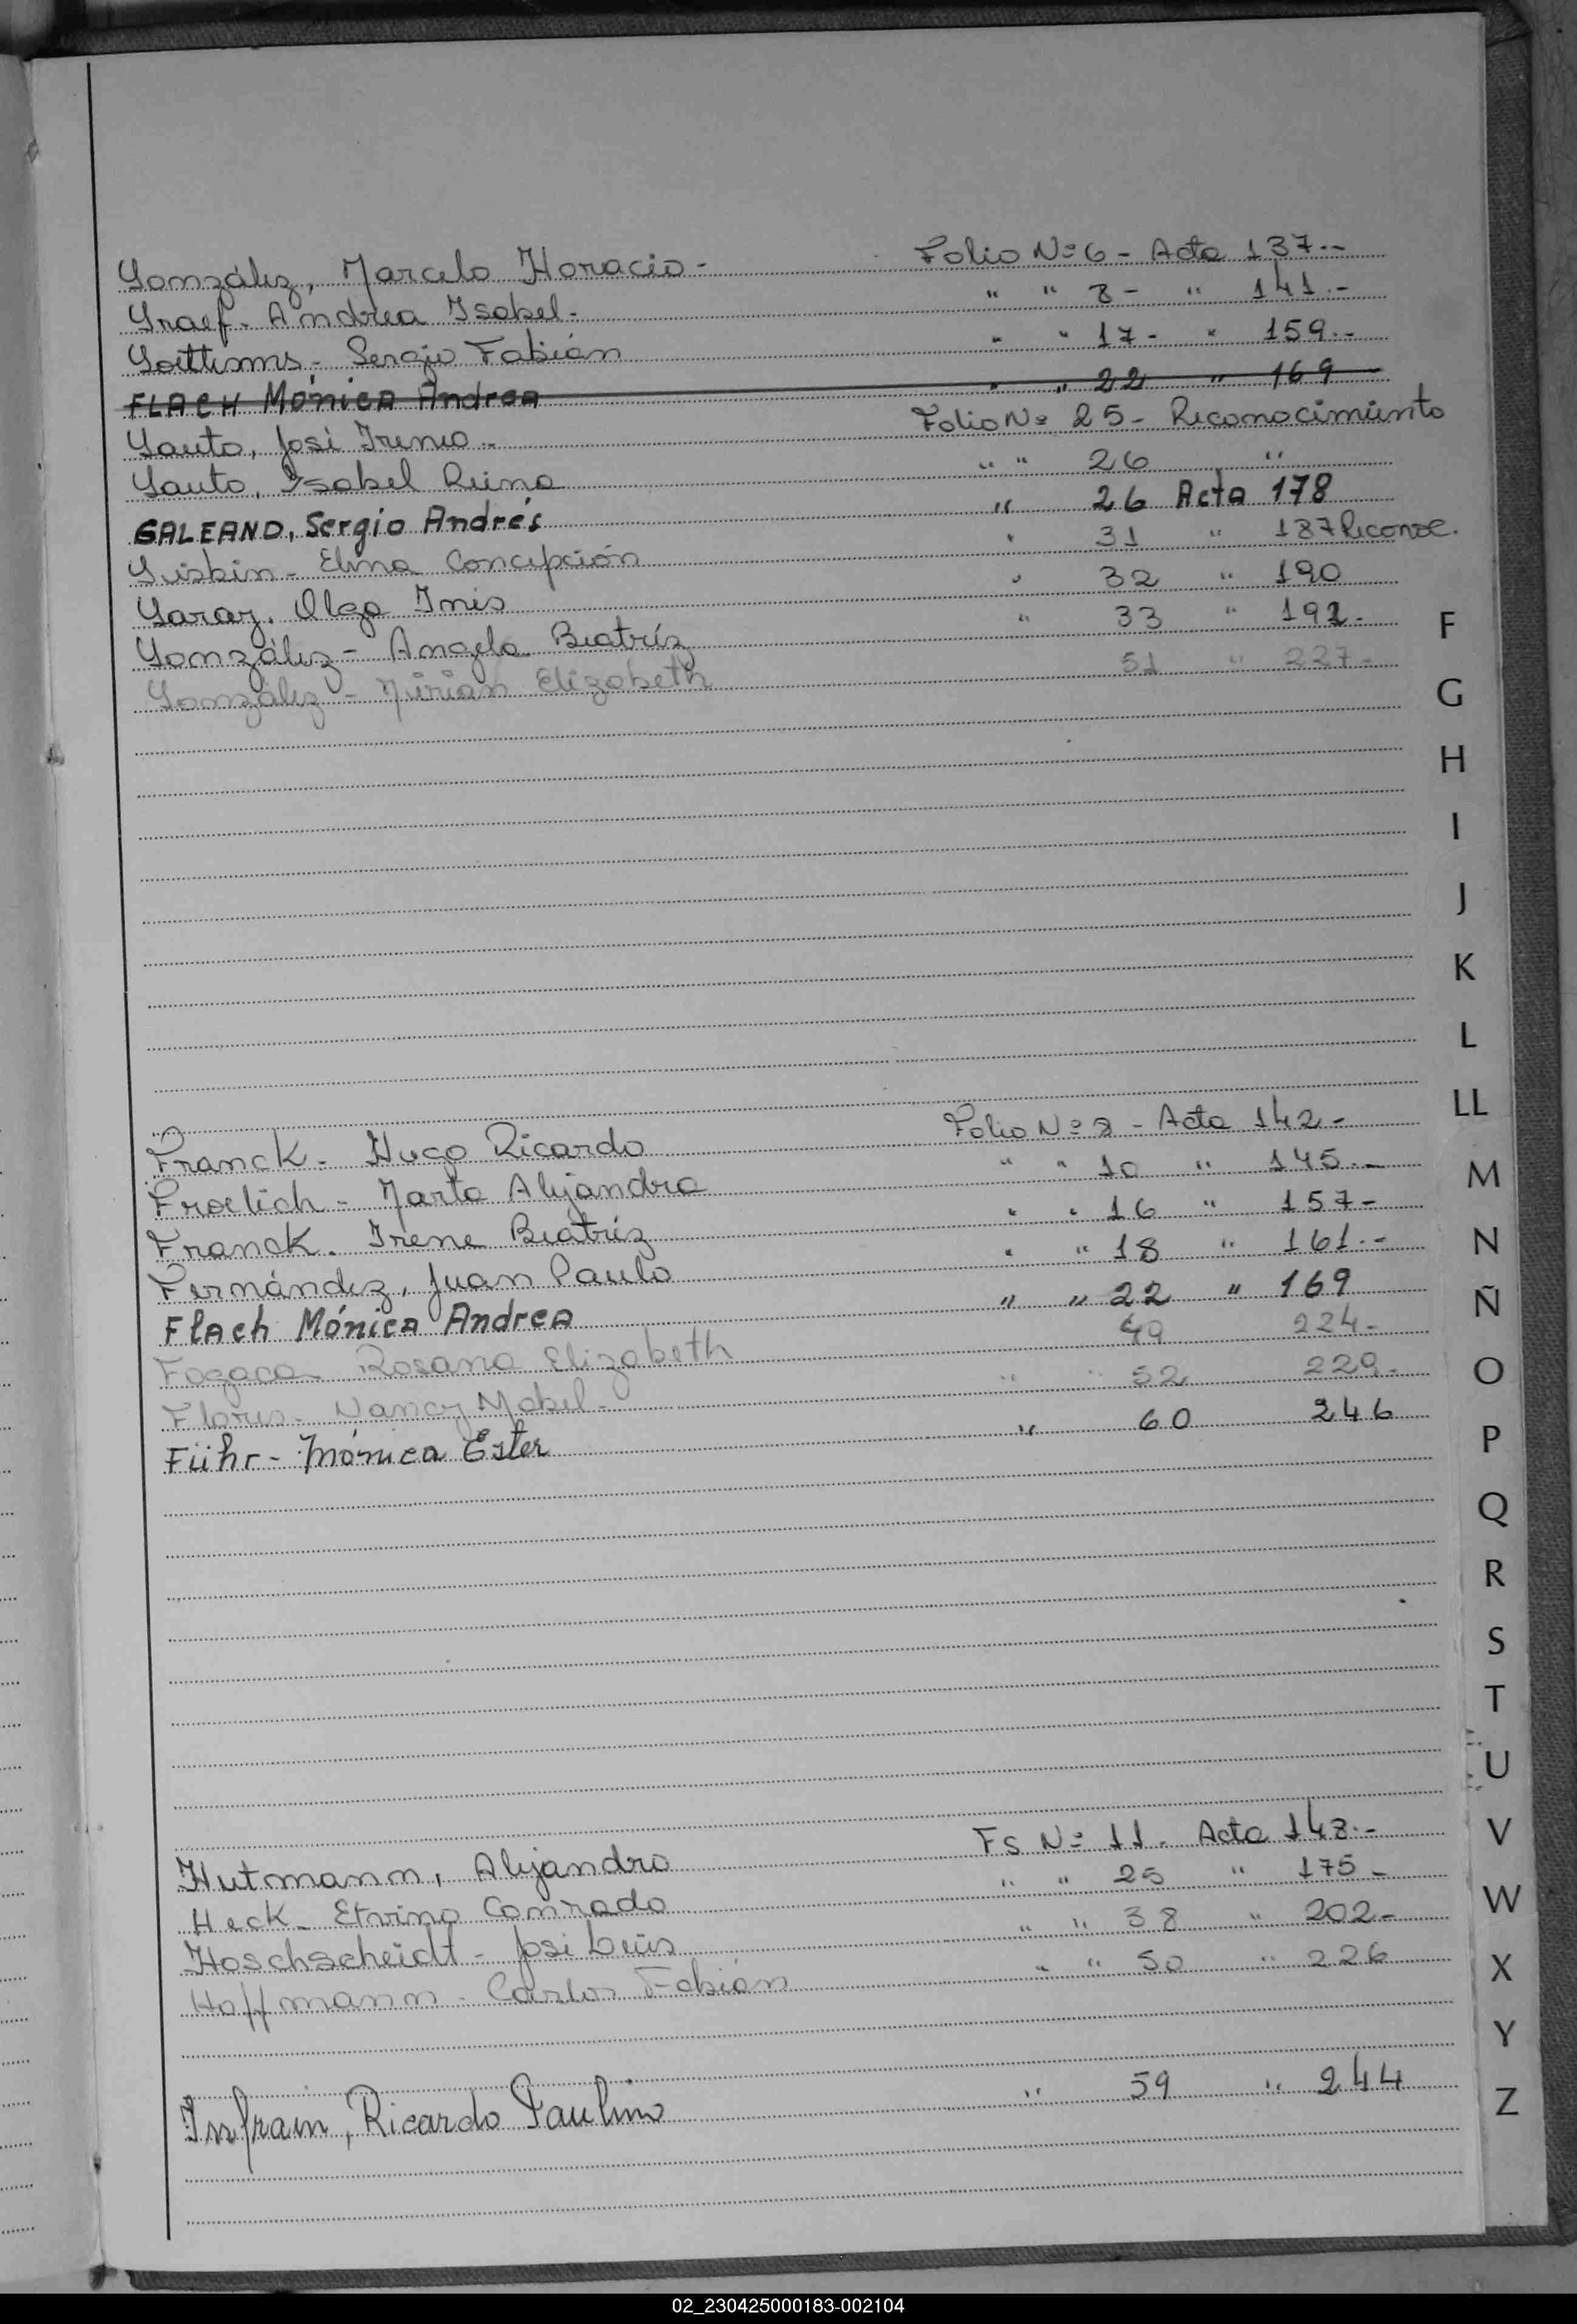 González, Marcelo Horacio - Folio Nº 6 - Acta 137.-
Graef - Andrea Isabel. - " " 8 - " 141.-
Sergio Fabián " " 17 - " 159.-
FLACH Mónica Andrea " " 22 " 169
Gauto, José Ireneo - Folio Nº 25 - Reconocimiento
Gauto, Isabel Reina " " 26 "
GALEANO, Sergio Andrés " 26 Acta 178
Guisbin - Elma Concepción " 31 " 187 Reconoc.
Garay. Olga Inés " 32 " 190
González - Angela Beatríz " 33 " 192.-
González - Mirian Elizabeth 51 " 227-
F
G
H
I
J
K
L
LL
M
N
Ñ
O
P
Q
R
S
T
U
V
W
X
Y
Z
Franck - Hugo Ricardo Folio Nº 8 - Acta 142 -
Froelich - Marta Alejandra " " 10 " 145.-
Franck. Irene Beatríz " " 16 " 157-
Fernández, Juan Paulo " " 18 " 161.-
Flach Mónica Andrea " " 22 " 169
Fogaca - Rosana Elizabeth 49 224-
Flores - Nancy Mabel - " " 52 229.
Führ - Mónica Ester " 60 246
Hutmann, Alejandro Fs Nº 11 - Acta 148.-
Heck - Etvino Conrado " " 25 " 175 -
Hoschscheidt - José Luis " " 38 " 202-
Hoffmann - Carlos Fabián " " 50 " 226
Insfrain, Ricardo Paulino " 59 " 244
02_230425000183-002104